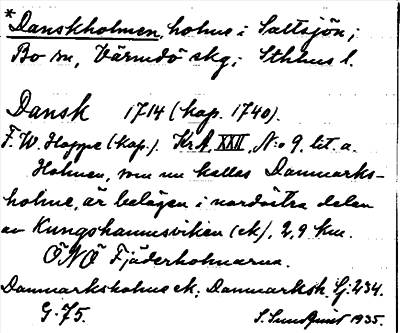 *Danskholmen, holme i Saltsjön,
Bo sn, Värmdö skg, Sthlms l.
Dansk 1714 (kop. 1740).
F. W. Hoppe (kop.) KrA XXII, N:o 9, lit. a.
Holmen, som nu kallas Danmarks-
holme, är belägen i nordöstra delen
av Kungshamnsviken (ek), 2,9 km.
ÖNÖ Fjäderholmarna.
Danmarksholme ek; Danmarksh. Sj. 234.
G. 75. S. Sundquist 1935.